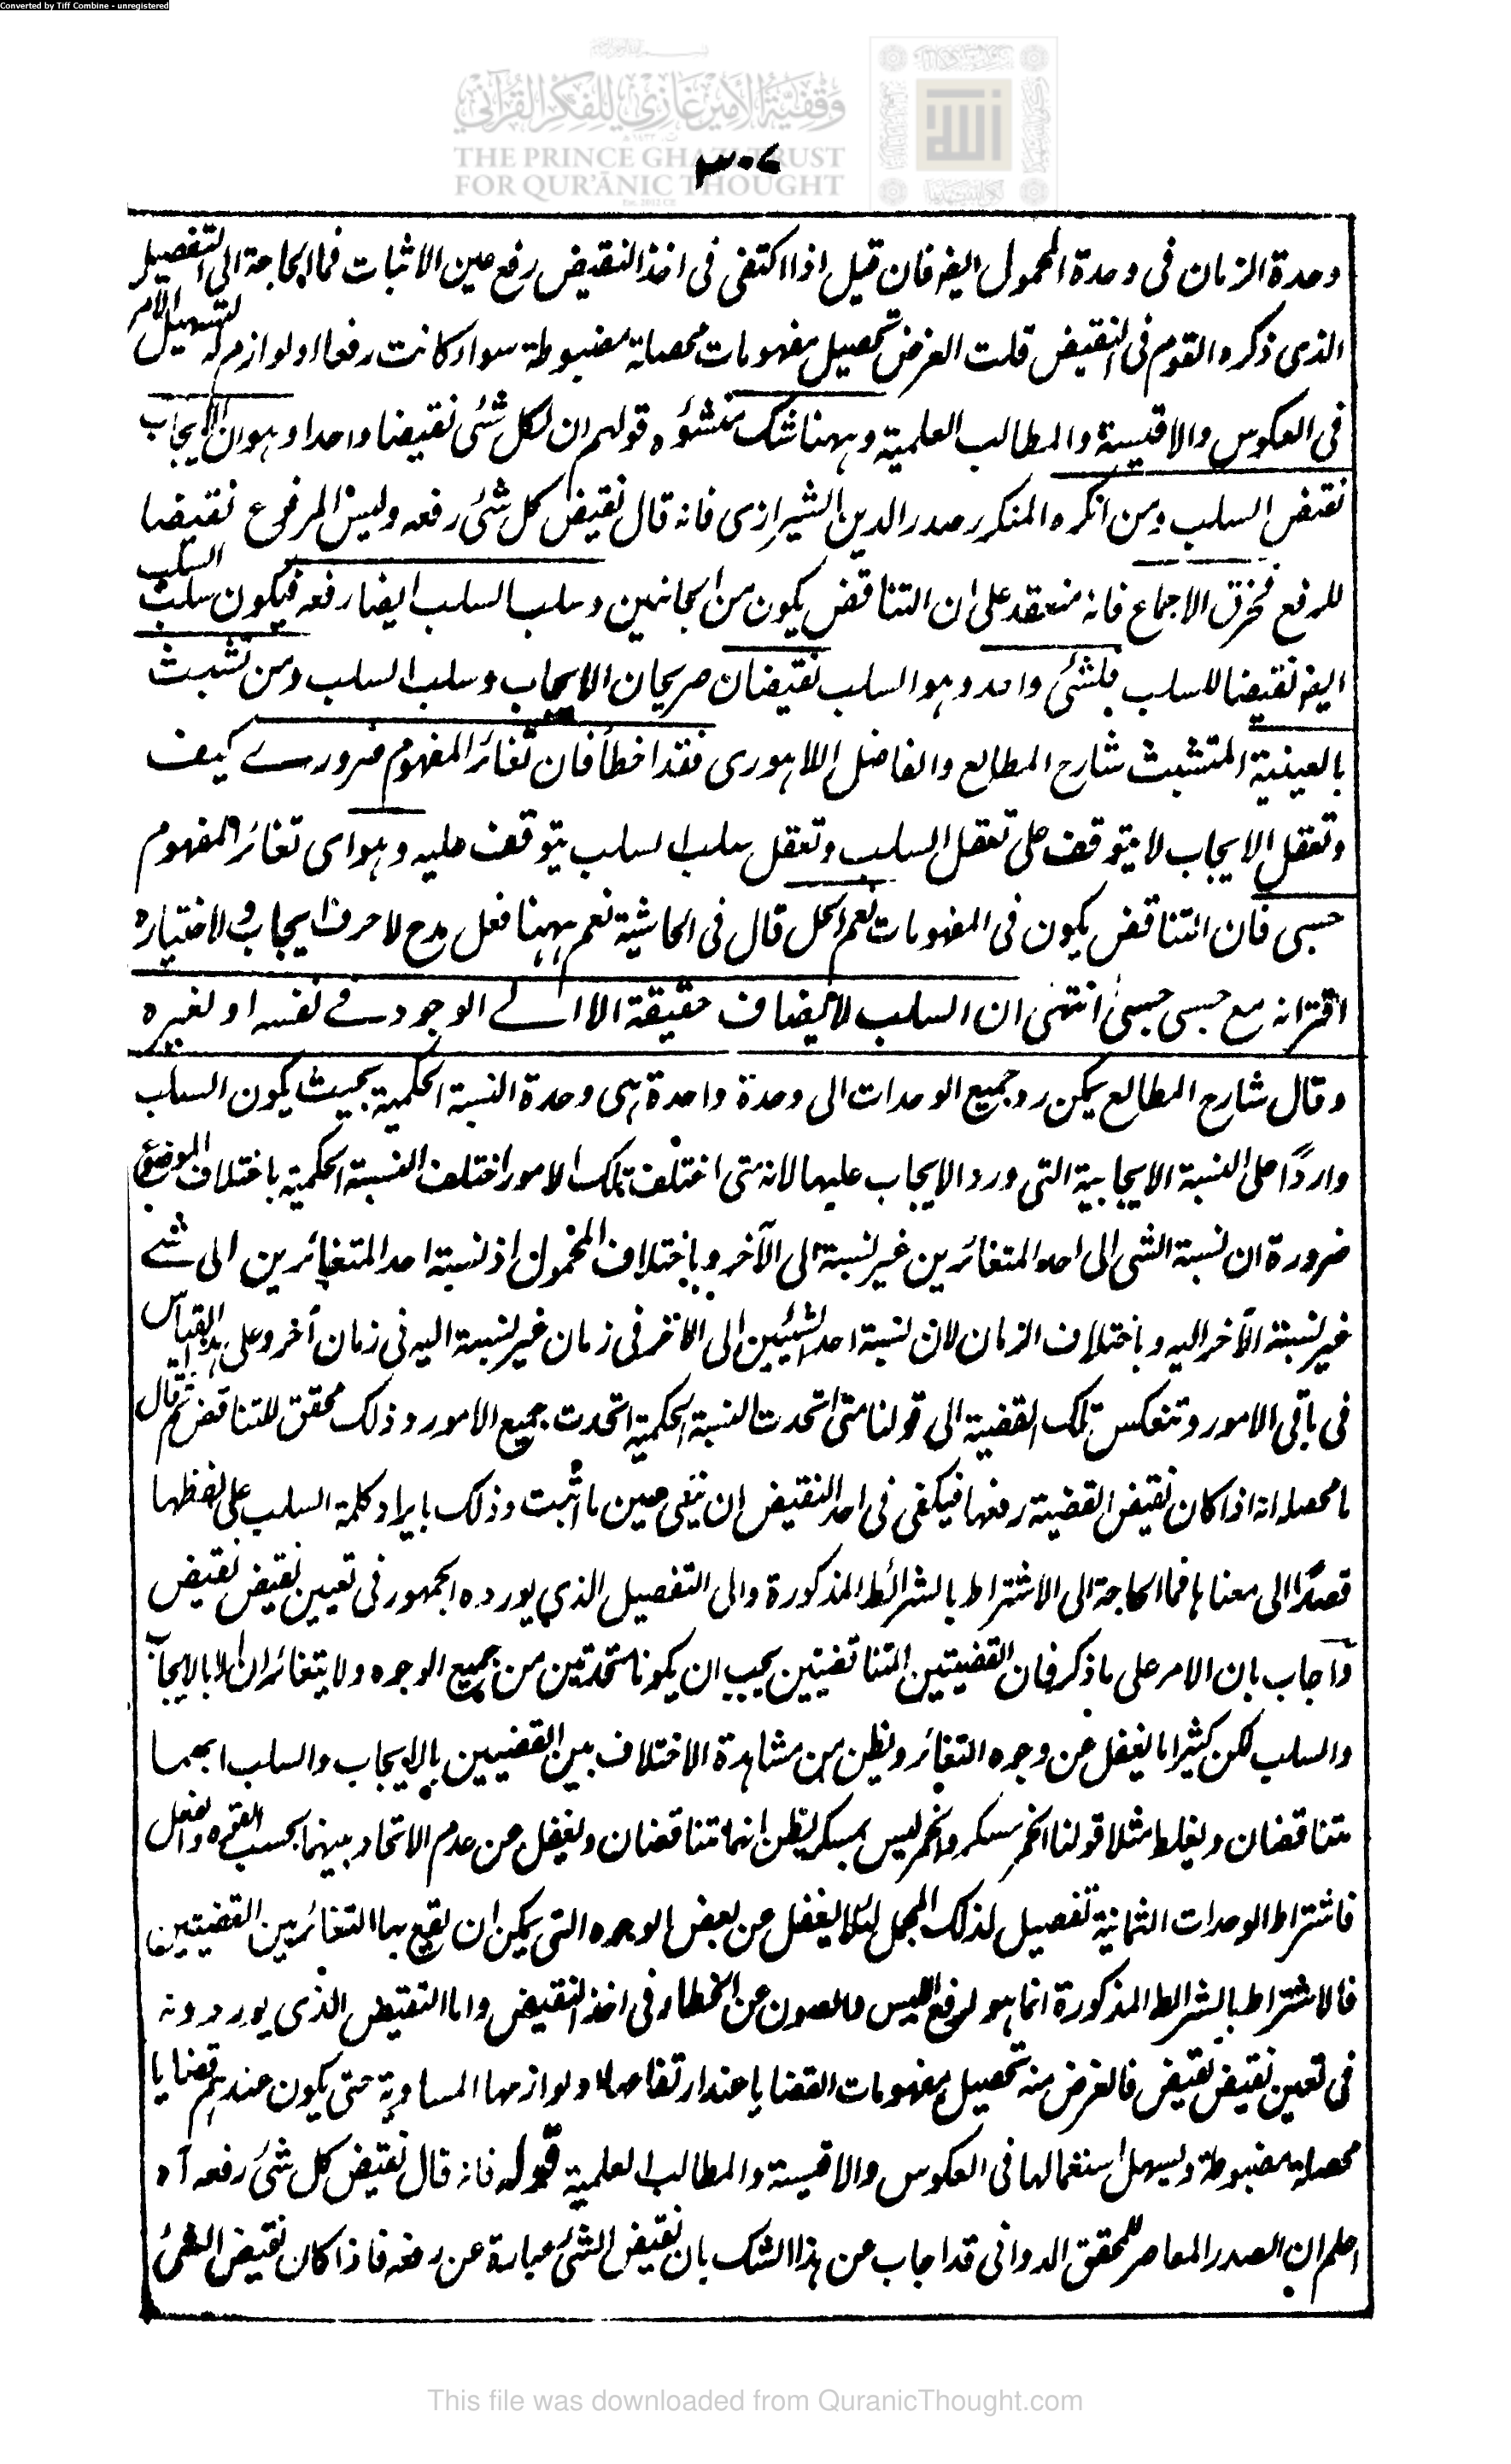 Converted by Tiff Combine - unregistered
وقفية الأمير غازي للفكر القرآني
THE PRINCE GHAZI TRUST
FOR QUR'ĀNIC THOUGHT
Est. 2012 CE
٣٠٧
وحدة الزمان فى وحدة المحمول ايضا فان قيل اذا اكتفى فى اخذ النقيض رفع عين الاثبات فما الحاجة الى التفصيل
الذى ذكره القوم فى النقيض قلت الغرض تحصيل مفهومات محصلة مضبوطة سواء كانت رفعا او لوازم له لتسهيل الامر
فى العكوس والاقيسة والمطالب العلمية وههنا شك منشؤه قولهم ان لكل شئ نقيضا واحدا وهو ان الايجاب
نقيض السلب ومن انكره المنكر صدر الدين الشيرازى فانه قال نقيض كل شئ رفعه وليس المرفوع نقيضا
للرفع فخرق الاجماع فانه منعقد على ان التناقض يكون من الجانبين وسلب السلب ايضا رفعه فيكون سلب السلب
ايضا نقيضا للسلب فلشئ واحد وهو السلب نقيضان صريحان الايجاب وسلب السلب ومن تشبث
بالعينية المتشبث شارح المطالع والفاضل اللاهورى فقد اخطأ فان تغائر المفهوم ضرورے كيف
وتعقل الايجاب لا يتوقف على تعقل السلب وتعقل سلب السلب يتوقف عليه وهو اى تغائر المفهوم
حسبى فان التناقض يكون فى المفهومات نعم الحل قال فى الحاشية نعم ههنا فعل مدح لا حرف ايجاب والاختياره
اقترانه مع حسبى حسبى انتهى ان السلب لا يضاف حقيقة الا الے الوجود فے نفسه او لغيره
وقال شارح المطالع يمكن رد جميع الوحدات الى وحدة واحدة هى وحدة النسبة الحكمية بحيث يكون السلب
واردًا على النسبة الايجابية التى ورد الايجاب عليها لانه متى اختلفت تلك الامور اختلف النسبة الحكمية باختلاف الموضوع
ضرورة ان نسبة الشى الى احد المتغائرين غير نسبة الى الآخر وباختلاف المحمول اذ نسبة احد المتغائرين الى شے
غير نسبة الآخر اليه وباختلاف الزمان لان نسبة احد الشيئين الى الآخر فى زمان غير نسبة اليه فى زمان آخر وعلى هذا القياس
فى باقى الامور وتنعكس تلك القضية الى قولنا متى اتحدت النسبة الحكمية اتحدت جميع الامور وذلك محقق للتناقض ثم قال
ما محصله انه اذا كان نقيض القضية رفعها فيكفى فى اخذ النقيض ان ينفى عين ما اثبت وذلك بايراد كلمة السلب على لفظها
قصدًا الى معناها فما الحاجة الى الاشتراط بالشرائط المذكورة والى التفصيل الذي يورده الجمهور فى تعيين نقيض نقيض
واجاب بان الامر على ما ذكر فان القضيتين المتناقضين يجب ان يكونا متحدتين من جميع الوجوه ولا يتغائران الا بالايجاب
والسلب لكن كثيرا ما يغفل عن وجوه التغائر ويظن من مشاهدة الاختلاف بين القضيتين بالايجاب والسلب انهما
متناقضان ويغلط مثلا قولنا الخمر مسكر والخمر ليس بمسكر يظن انهما متناقضان ويغفل عن عدم الاتحاد بينهما بحسب القوة والفعل
فاشتراط الوحدات الثمانية تفصيل لذلك المجمل لئلا يغفل عن بعض الوجوه التى يمكن ان يقع بها التغائر بين القضيتين
فالاشتراط بالشرائط المذكورة انما هو لرفع اللبس والصون عن الخطاء فى اخذ النقيض واما النقيض الذى يوردونه
فى تعين نقيض نقيض فالغرض منه تحصيل مفهومات القضايا عند ارتفاعها او لوازمها المساوية حتى يكون عندهم قضايا
محصلة مضبوطة ويسهل استعمالها فى العكوس والاقيسة والمطالب العلمية قوله فانه قال نقيض كل شئ رفعه آه
اعلم ان الصدر المعاصر للمحقق الدوانى قد اجاب عن هذا الشك بان نقيض الشئ عبارة عن رفعه فاذا كان نقيض الشئ
This file was downloaded from QuranicThought.com